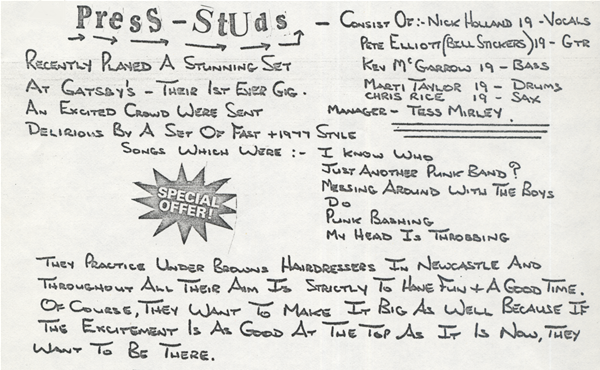 PresS - StUds
- CONSIST OF:- NICK HOLLAND 19 - VOCALS
PETE ELLIOTT (BILL STICKERS) 19 - GTR
KEV McGARROW 19 - BASS
MARTI TAYLOR 19 - DRUMS
CHRIS RICE 19 - SAX
MANAGER - TESS MIRLEY.
RECENTLY PLAYED A STUNNING SET
AT GATSBY'S - THEIR 1ST EVER GIG.
AN EXCITED CROWD WERE SENT
DELIRIOUS BY A SET OF FAST + 1977 STYLE
SONGS WHICH WERE :- I KNOW WHO
JUST ANOTHER PUNK BAND?
MESSING AROUND WITH THE BOYS
DO
PUNK BASHING
MY HEAD IS THROBBING
SPECIAL
OFFER!
THEY PRACTICE UNDER BROWNS HAIRDRESSERS IN NEWCASTLE AND
THROUGHOUT ALL THEIR AIM IS STRICTLY TO HAVE FUN + A GOOD TIME.
OF COURSE, THEY WANT TO MAKE IT BIG AS WELL BECAUSE IF
THE EXCITEMENT IS AS GOOD AT THE TOP AS IT IS NOW, THEY
WANT TO BE THERE.